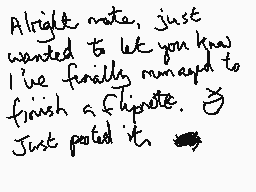 Alright mate, just
wanted to let you know
I've finally managed to
finish a flipnote.
Just posted it